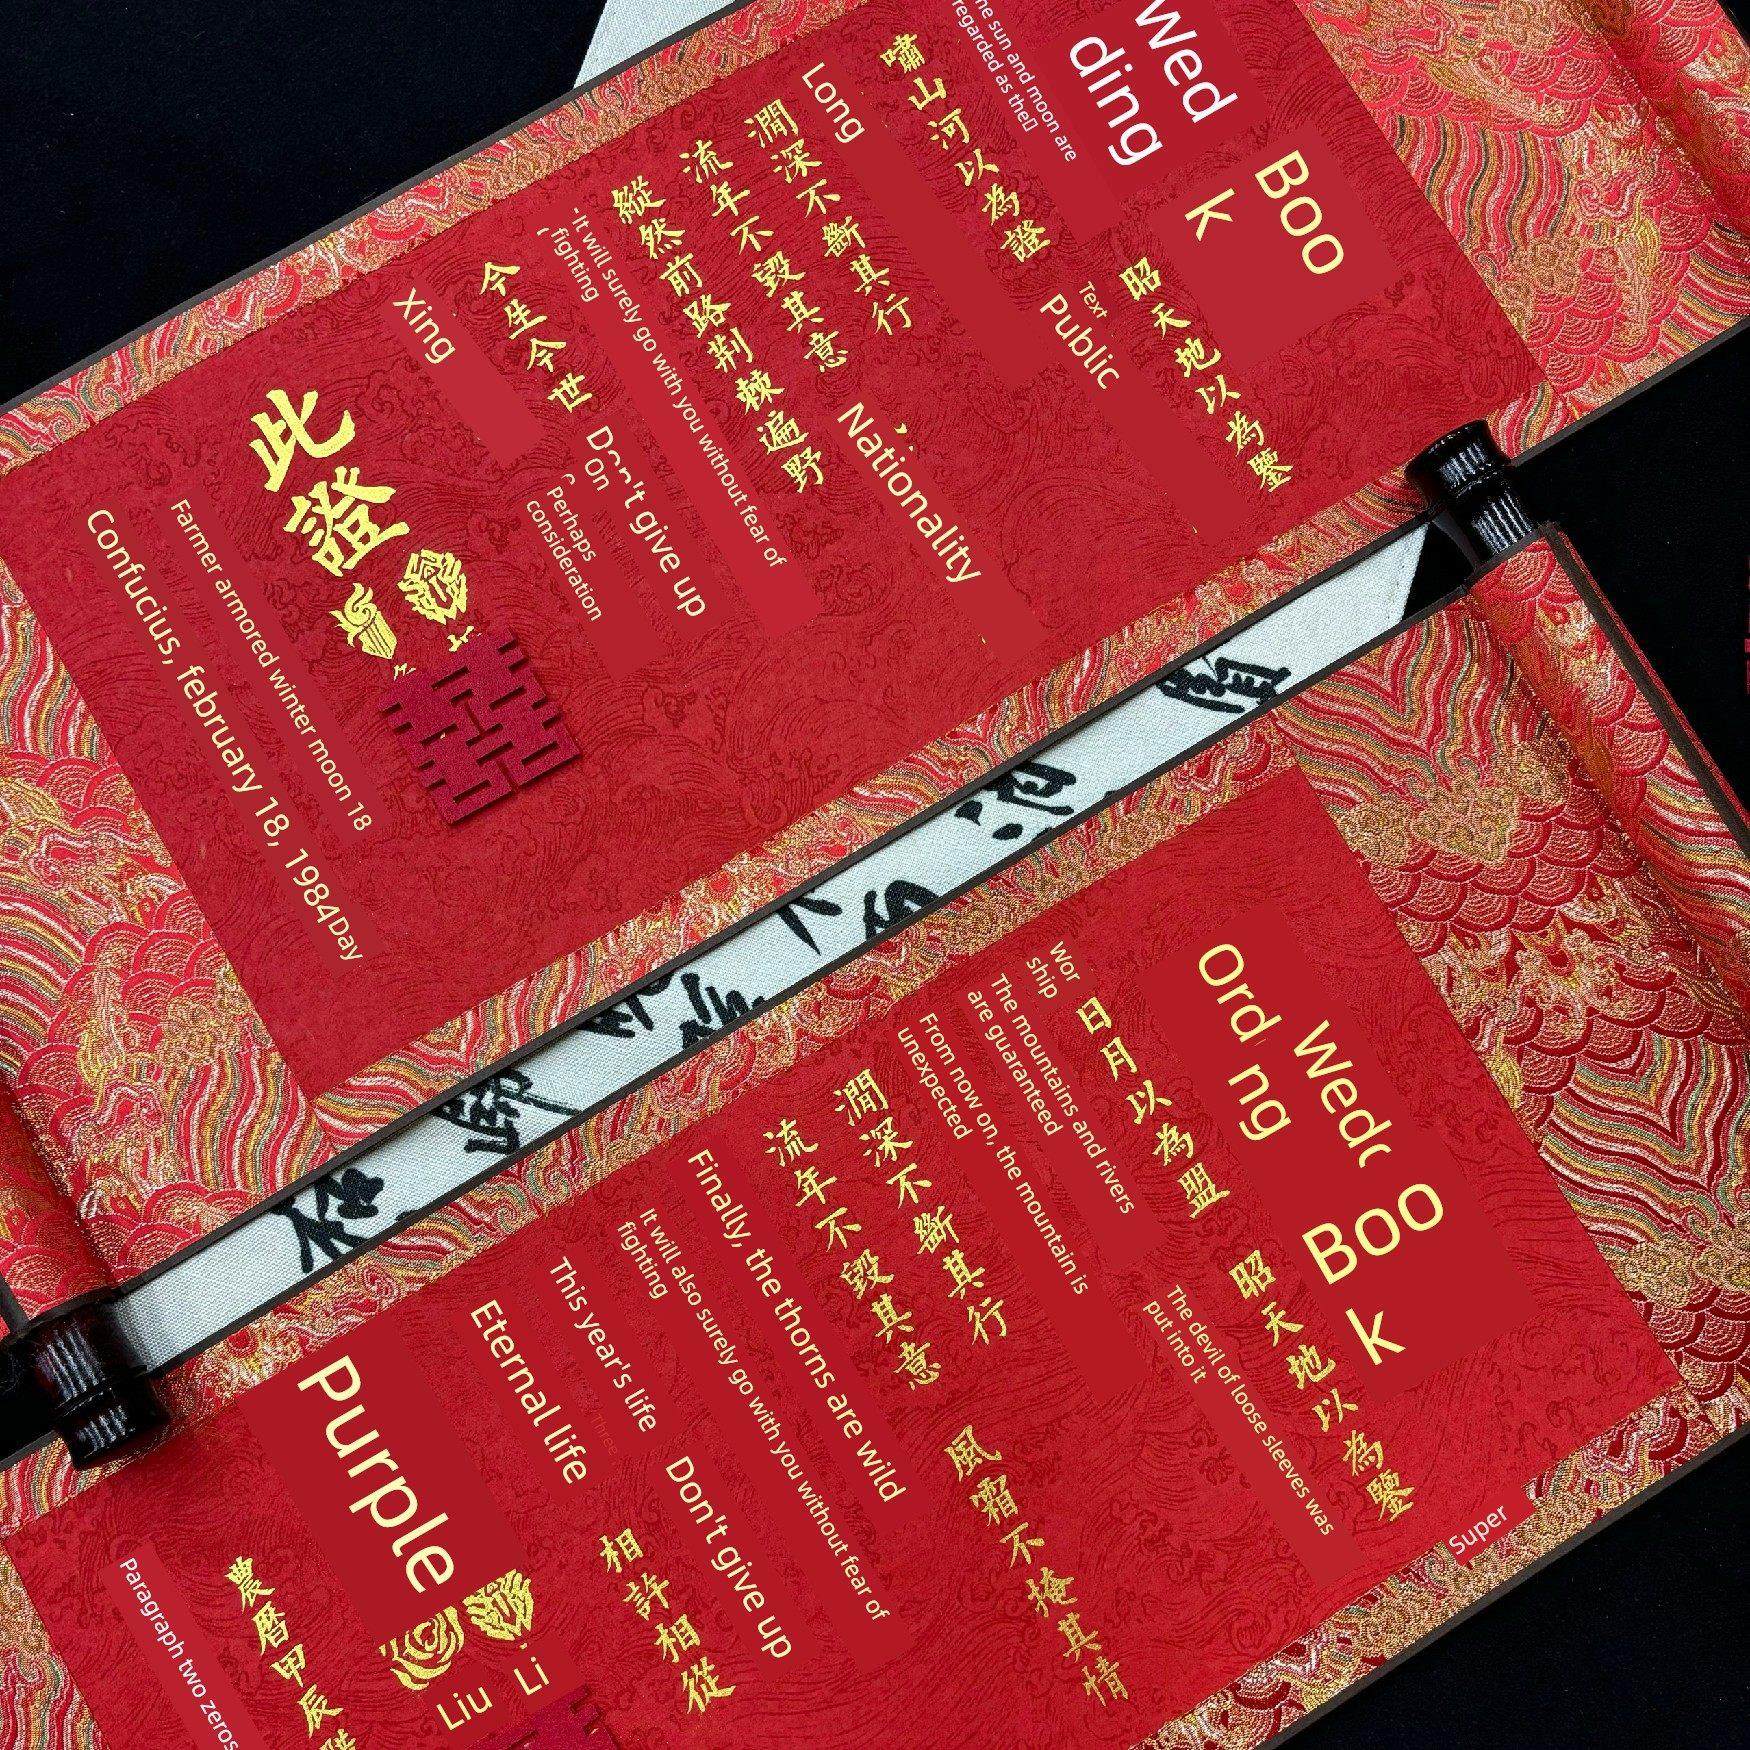 Wed
ding
Boo
k
he sun and moon are
regarded as the
昭天地以為鑒
嘯山河以為證
Text
Public
Long
澗深不斷其行
Nationality
流年不毀其意
縱然前路荆棘遍野
It will surely go with you without fear of
fighting
今生今世
Don't give up
On
Perhaps
consideration
Xing
此證
Farmer armored winter moon 18
Confucius, february 18, 1984Day
囍
Wedd
Ord ng
Boo
k
昭天地以為鑒
Wor
ship
日月以為盟
The devil of loose sleeves was
put into it
The mountains and rivers
are guaranteed
From now on, the mountain is
unexpected
Super
澗深不斷其行
風霜不掩其情
流年不毀其意
Finally, the thorns are wild
It will also surely go with you without fear of
fighting
This year's life
Three
Don't give up
Eternal life
相許相從
Purple
Li
Liu
農曆甲辰
Paragraph two zeros